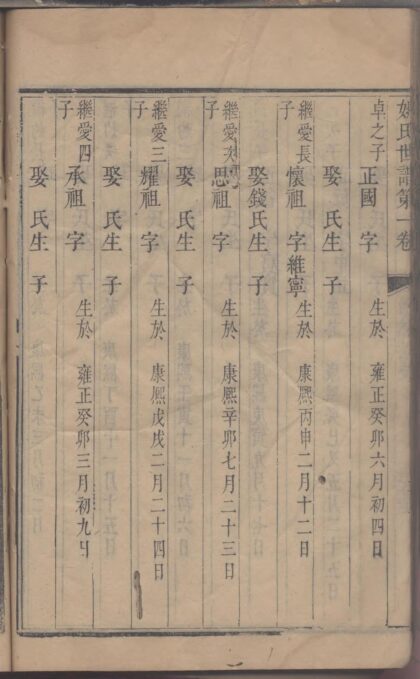 姚氏世譜第一卷
卓之子 正國 字 生於 雍正癸卯六月初四日
娶 氏生 子
繼愛長子 懷祖 字維寧 生於 康熙丙申二月十二日
娶錢氏生 子
繼愛次子 思祖 字 生於 康熙辛卯七月二十三日
娶 氏生 子
繼愛三子 耀祖 字 生於 康熙戊戌二月二十四日
娶 氏生 子
繼愛四子 承祖 字 生於 雍正癸卯三月初九日
娶 氏生 子